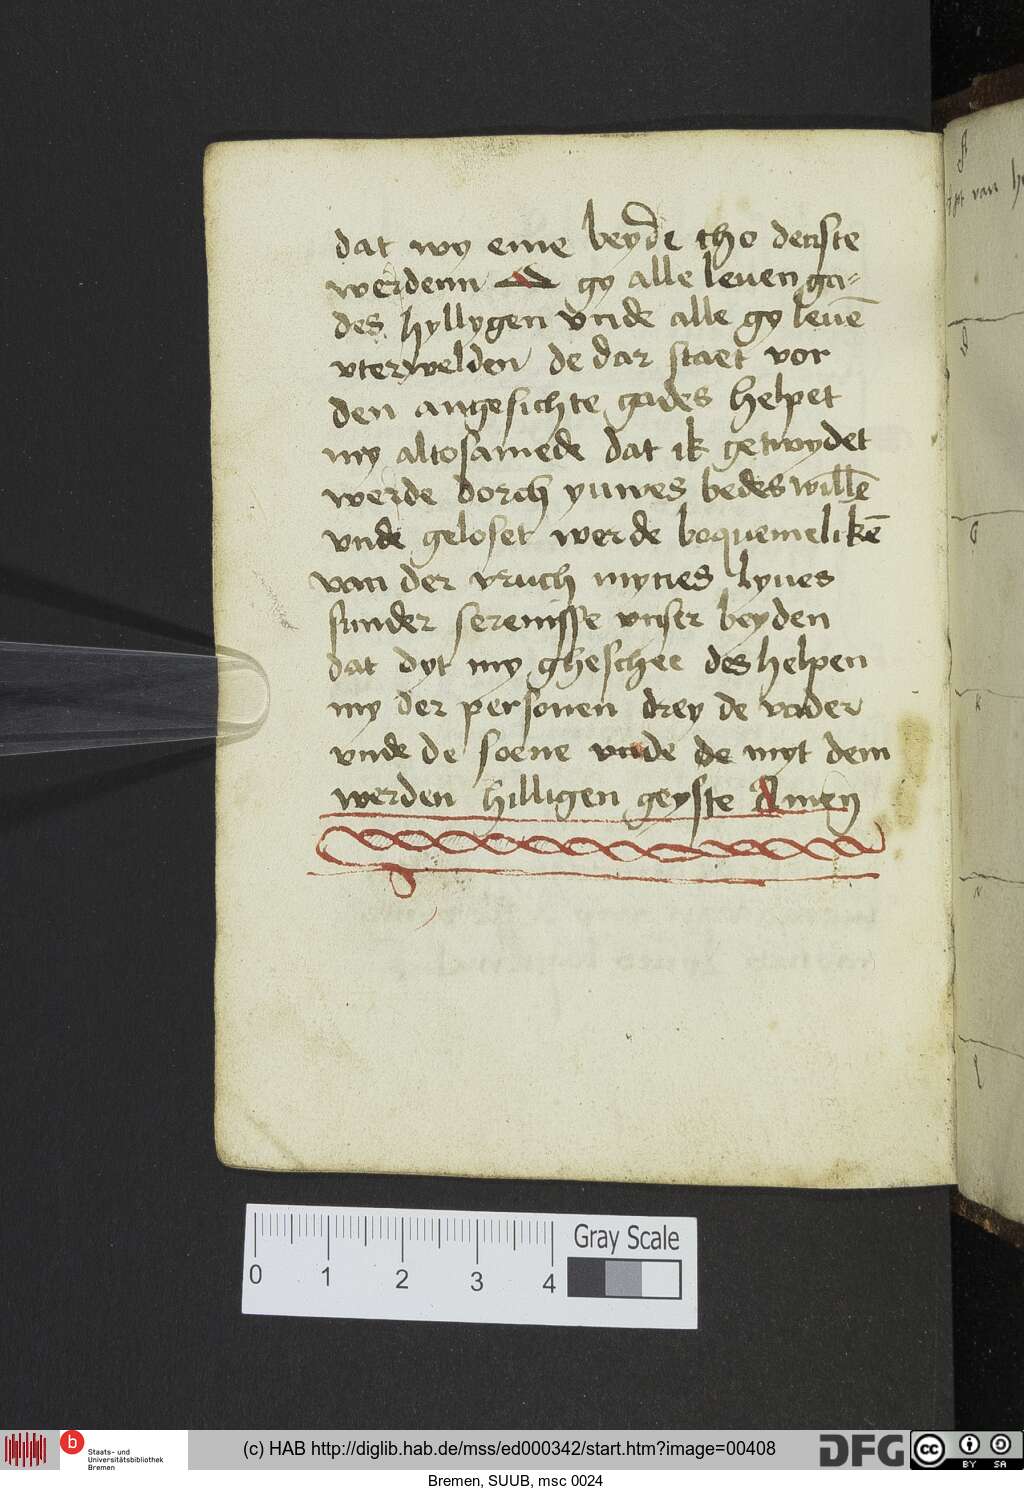 dat wy eme beyde tho denste
werdenn gy alle leuen ga-
des hyllygen vnde alle gy leuē
vterwelden de dar staet vor
den angesichte gades helpet
my altosamede dat ik getwydet
werde dorch yuwes bedes willē
vnde geloset werde boquemelikē
van der vruch mynes lyues
sunder serenisse vnser beyden
dat dyt my gheschee des helpen
my der personen drey de vader
vnde de soene vnde de myt dem
werden hilligen geyste Amen
van
0 1 2 3 4
Gray Scale
b
Staats- und
Universitätsbibliothek
Bremen
(c) HAB http://diglib.hab.de/mss/ed000342/start.htm?image=00408
DFG
cc BY SA
Bremen, SUUB, msc 0024